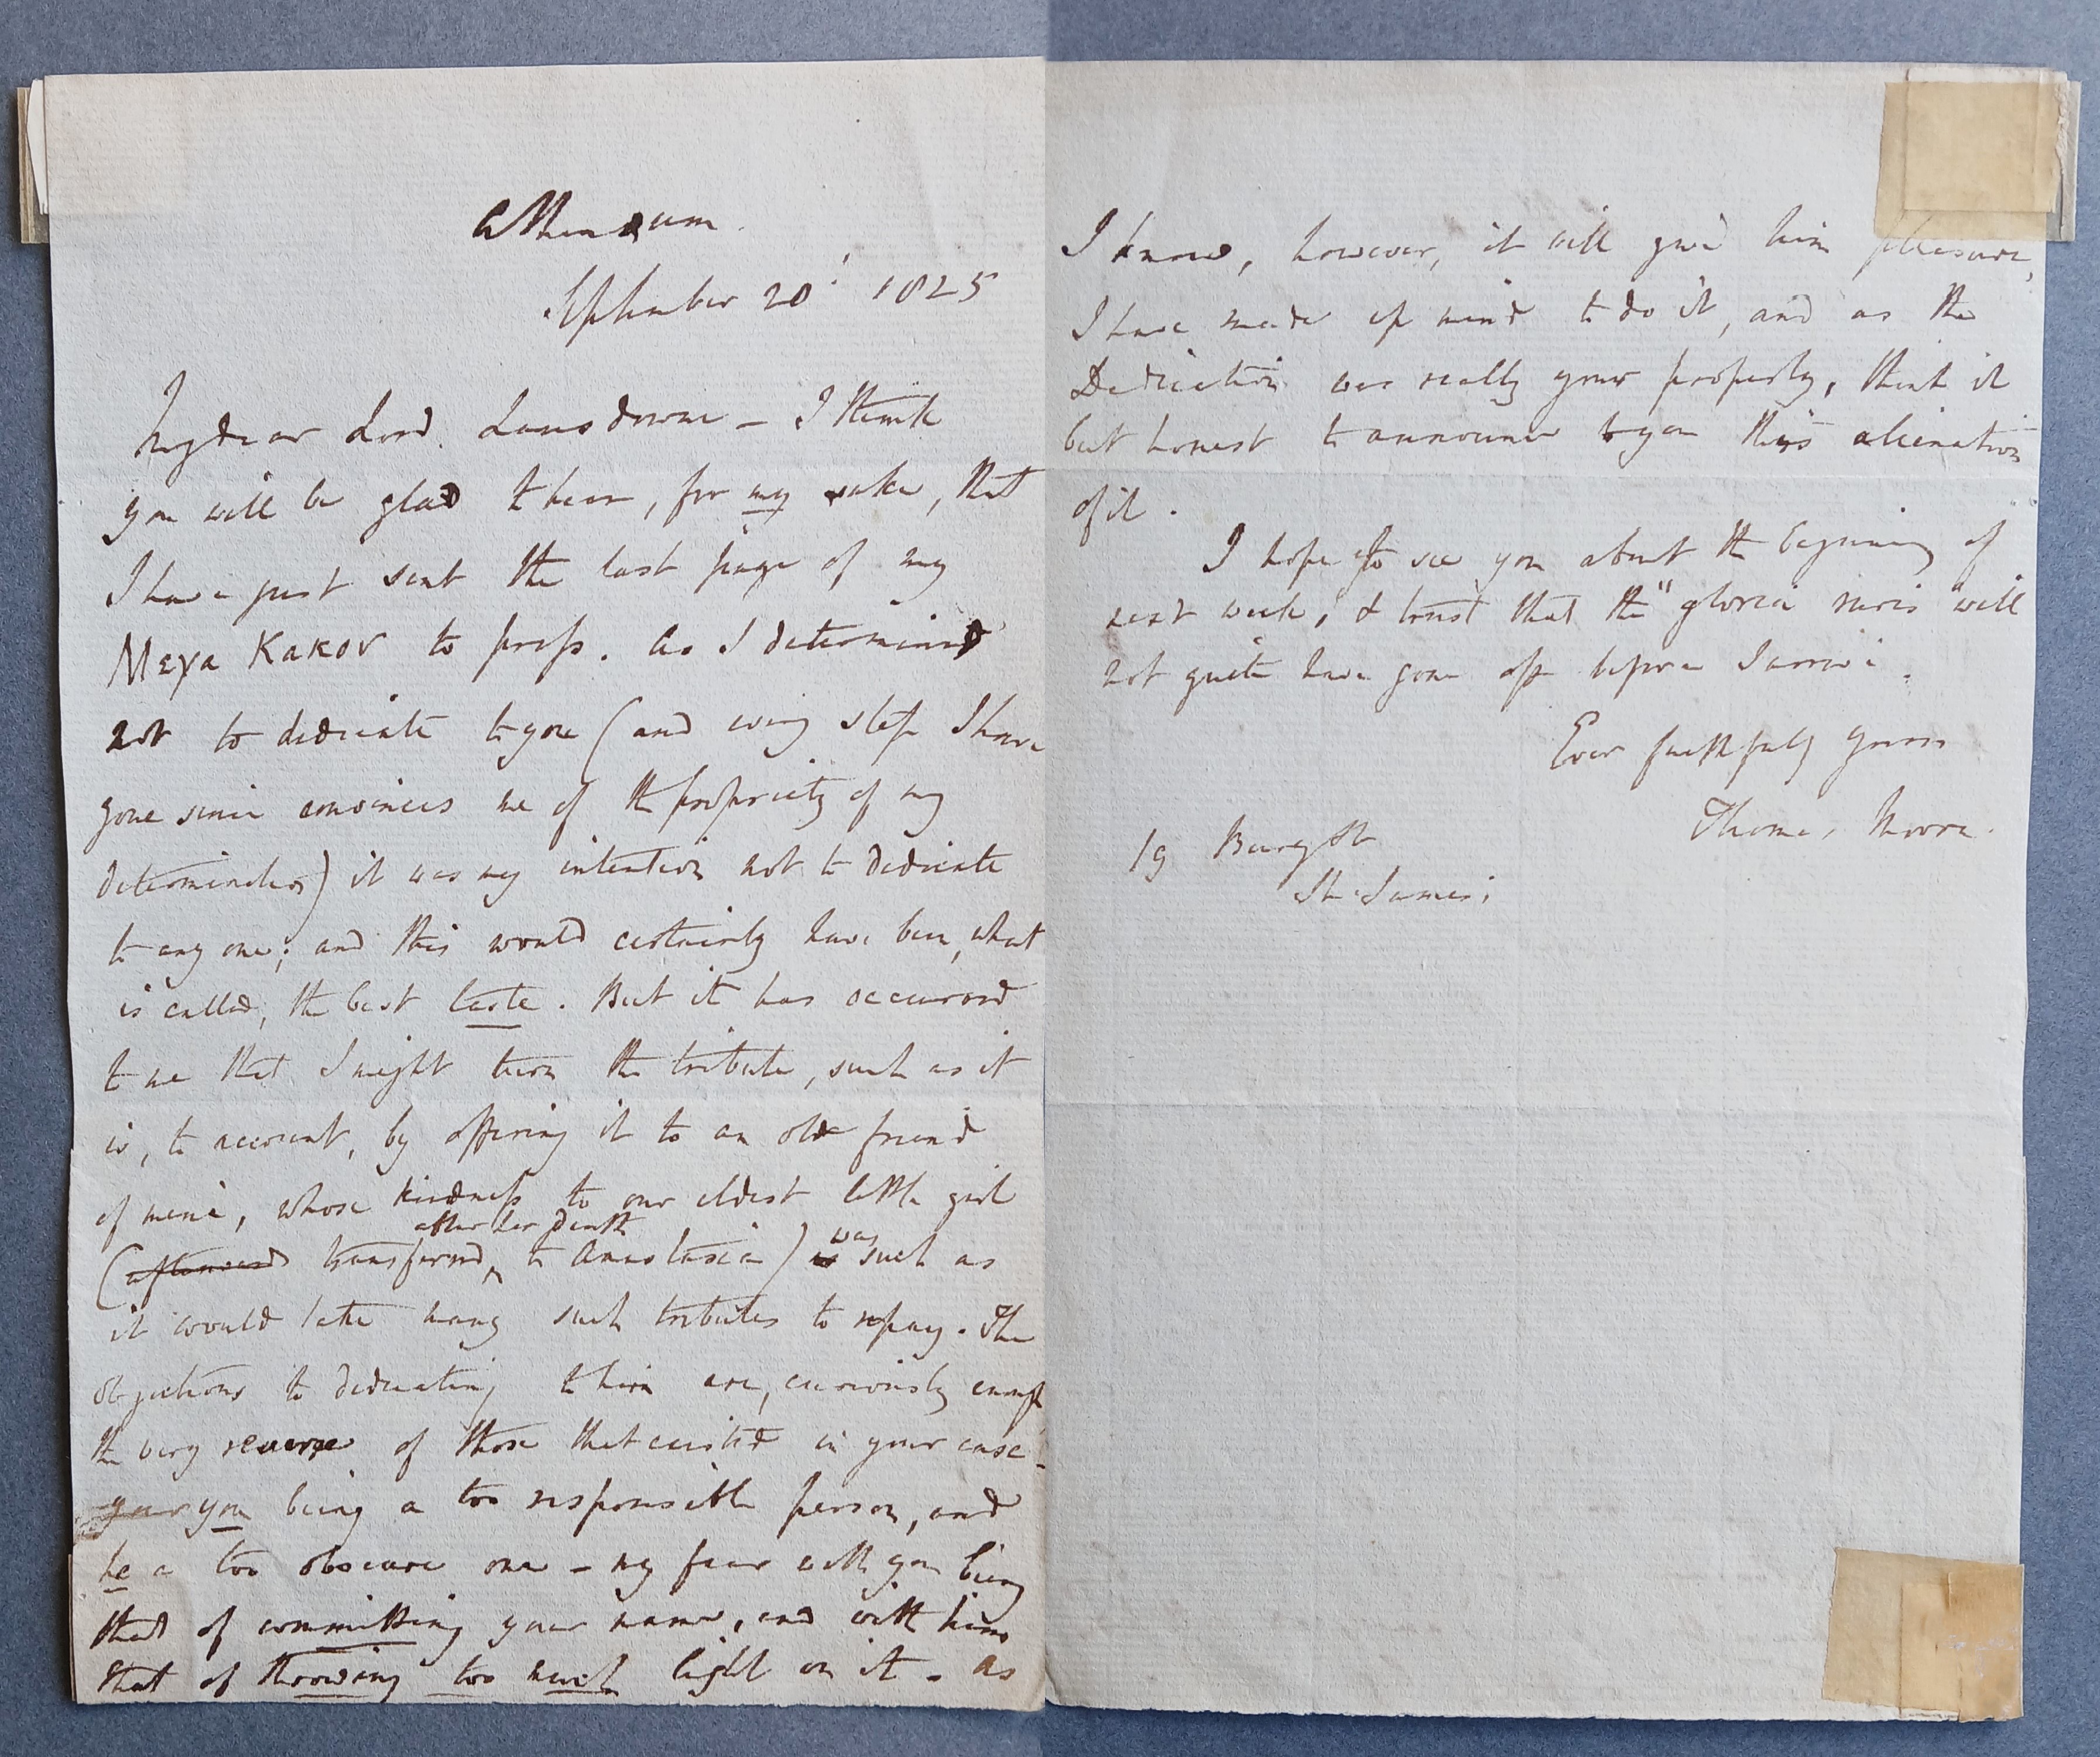 Athenaeum.
September 20! 1825
My dear Lord Lansdowne – I think
you will be glad to hear, for my sake, that
I have just sent the last page of my
Μεγα Κακον to press. As I determined
not to dedicate to you (and every step I have
gone since convinces me of the propriety of my
determination) it was my intention not to dedicate
to any one; and this would certainly have been, what
is called, the best taste. But it has occurred
to me that I might turn the tribute, such as it
is, to account, by offering it to an old friend
of mine, whose kindness to our eldest little girl
after her death was
(afterwards transferred to Anastasia) is such as
it would take many such tributes to repay. The
objections to dedicating to him are, curiously enough
the very reverse of those that existed in your case –
your you being a too responsible person, and
he a too obscure one – my fear with you being
that of committing your name, and with him
that of throwing too much light on it – As
I know, however, it will give him pleasure,
I have made up mind to do it, and as the
Dedication was really your property, think it
but honest to announce to you this alienation
of it.
I hope to see you about the beginning of
next week, & trust that the "gloria ruris" will
not quite have gone off before I arrive.
Ever faithfully yours
Thomas Moore.
19 Bury St
St. James's